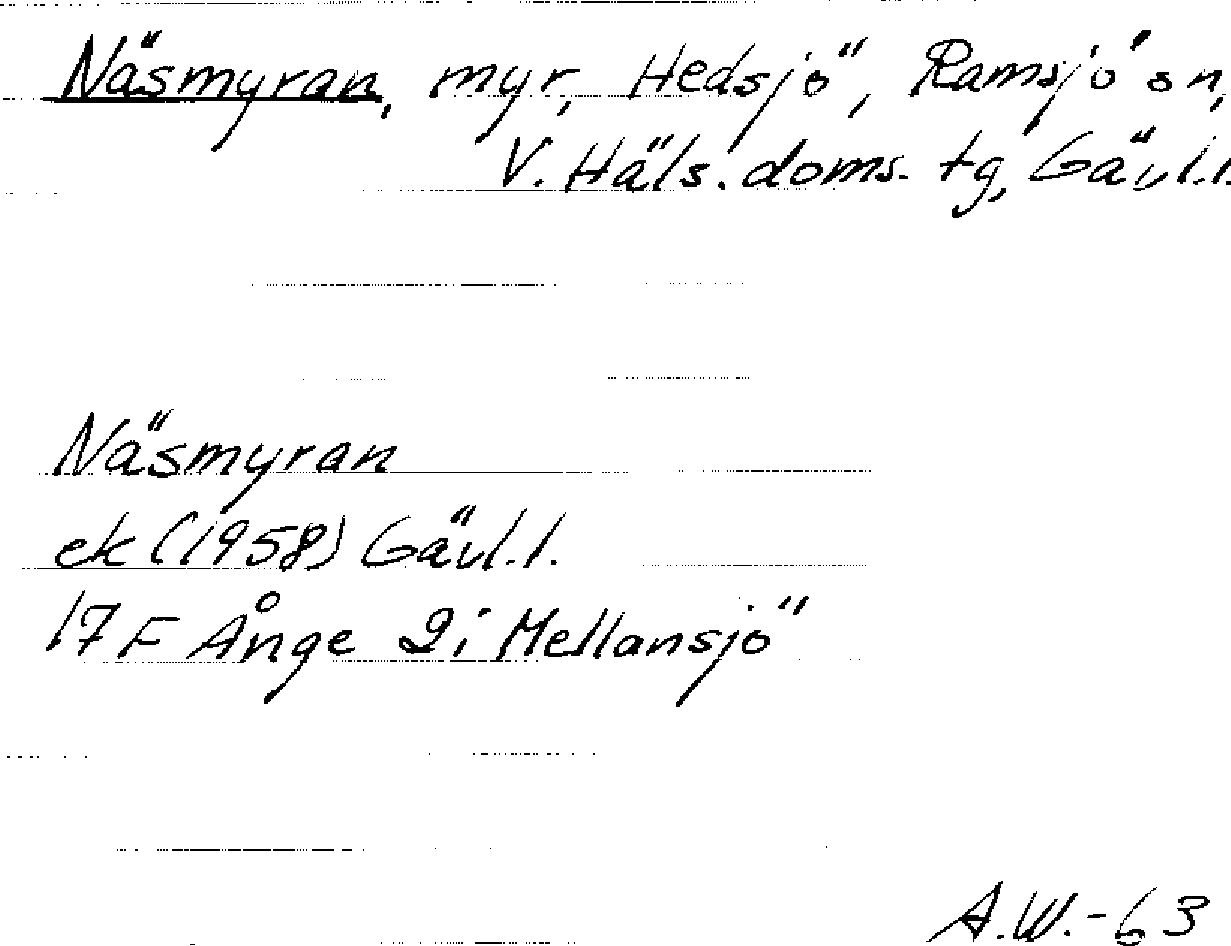 Näsmyran, myr, Hedsjö, Ramsjö sn,
V. Häls. doms. tg, Gävl.l.
Näsmyran
ek (1958) Gävl.l.
17 F Ånge 2i Mellansjö
A.W.-63